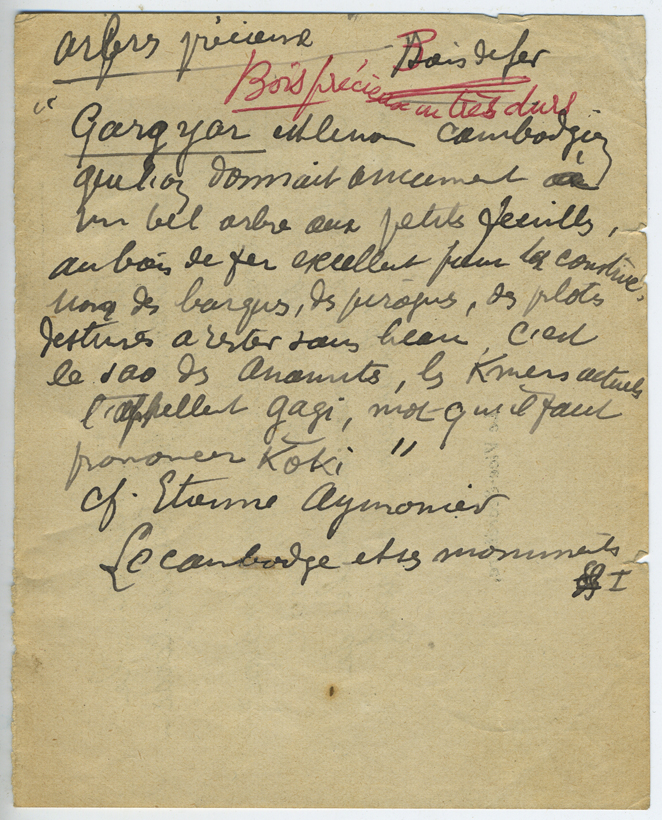 arbres précieux
Bois de fer
Bois précieux ou très durs
" Gargyar est le nom cambodgien
que l'on donnait anciennement à
un bel arbre aux petites feuilles,
au bois de fer excellent pour les construc-
tions des barques, des pirogues, des pilotis
destinés à rester sous l'eau, c'est
le sao des Anamites, les Kmers actuels
l'appellent gagi, mot qu'il faut
prononcer Koki "
cf. Etienne Aymonier
Le cambodge et ses monuments
I